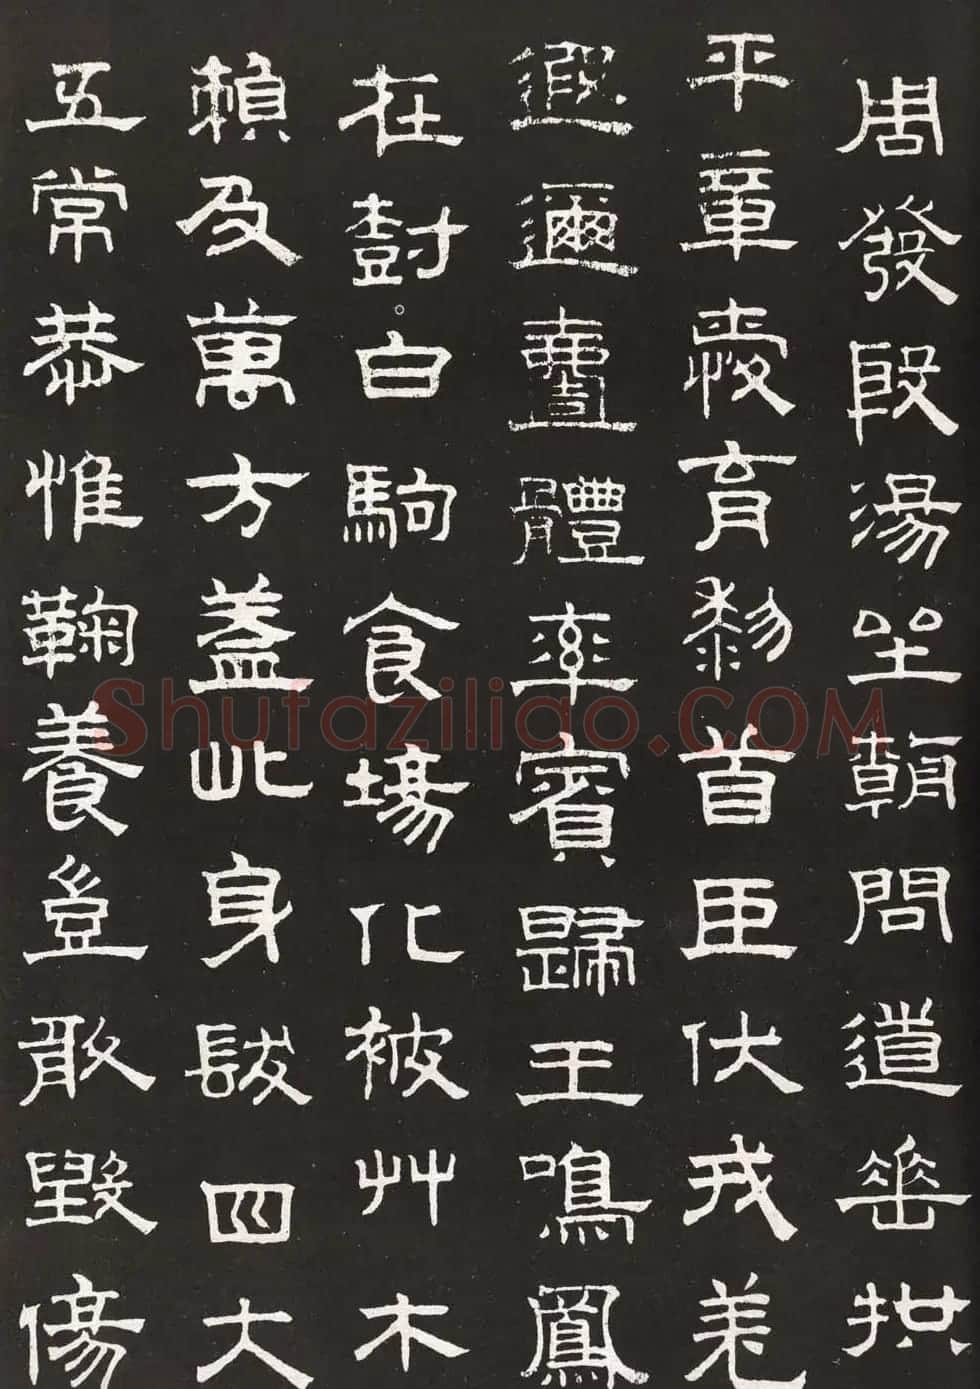 周發殷湯坐朝問道垂拱
平章愛育黎首臣伏戎羌
遐邇壹體率賓歸王鳴鳳
在樹白駒食場化被草木
賴及萬方蓋此身髮四大
五常恭惟鞠養豈敢毀傷
Shufaziliao.COM